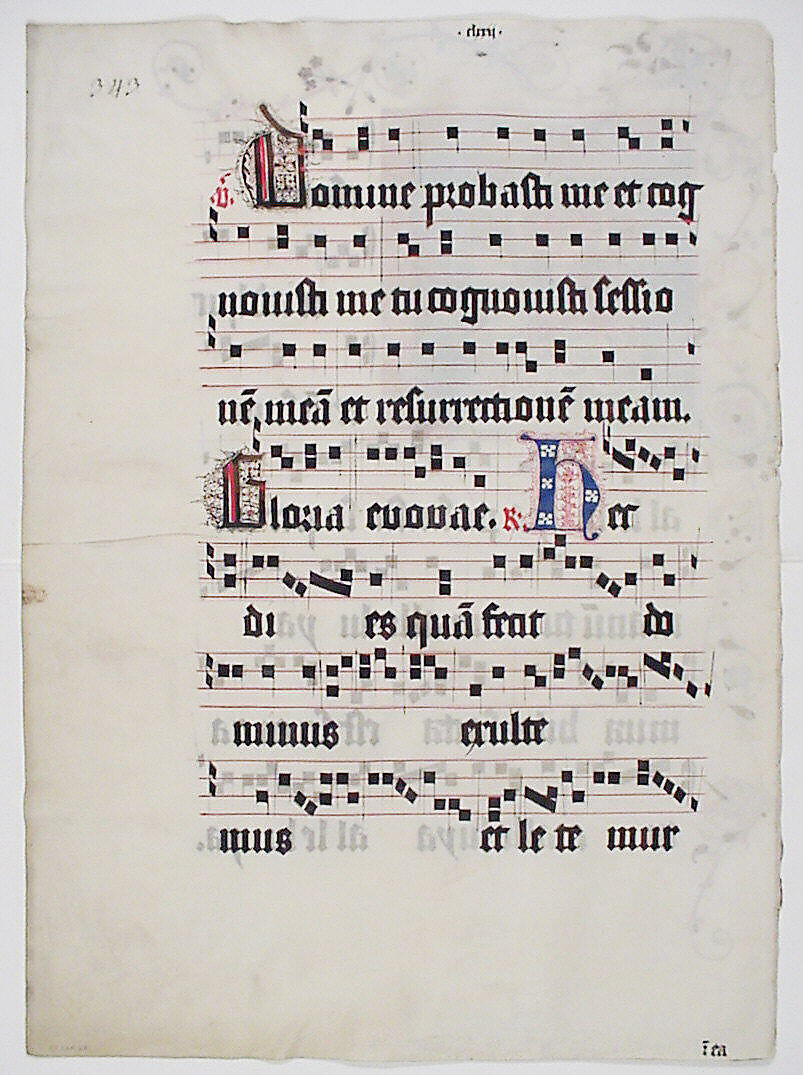 · clxxj ·
343
v. Domine probasti me et cog
nouisti me tu cognouisti sessio
nē meā et resurrectionē meam.
Gloria euouae. R. Hec
di es quā fecit do
minus exulte
mus et le te mur
ī ea